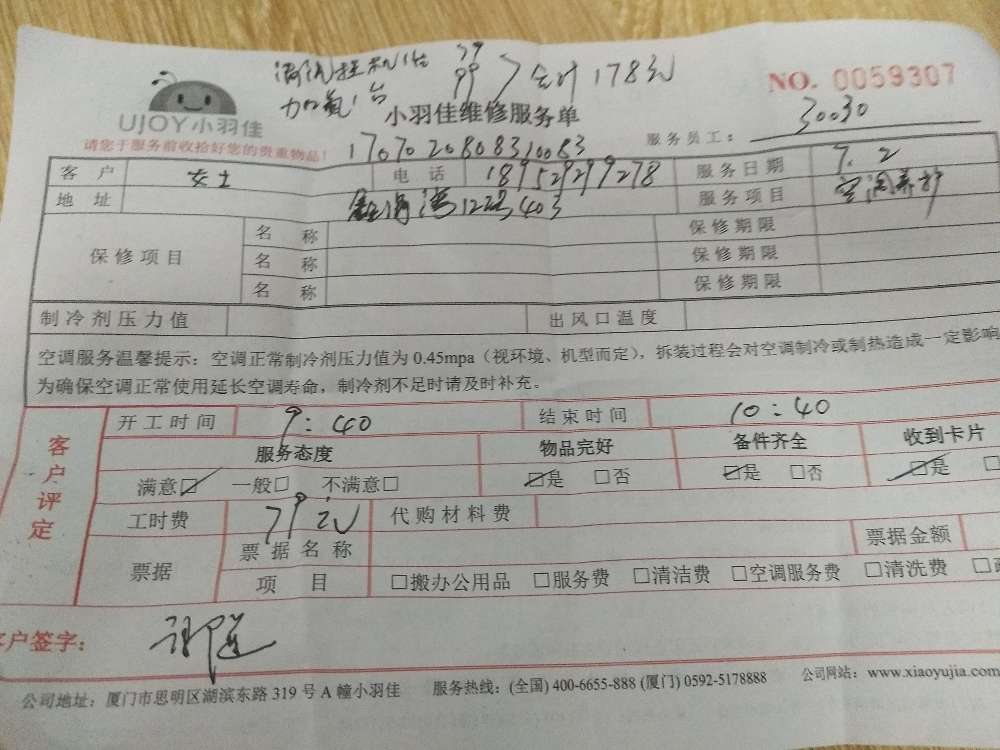 1台 79
加氟1台 99 > 合计178元
NO. 0059307
UJOY小羽佳
小羽佳维修服务单
请您于服务前收拾好您的贵重物品!
服务员工: 30030
1707020808310083
客户 女士 电话 18952929278 服务日期 7.2
地址 122号403 服务项目 空调养护
保修项目 名称 保修期限
名称 保修期限
名称 保修期限
制冷剂压力值 出风口温度
空调服务温馨提示:空调正常制冷剂压力值为0.45mpa(视环境、机型而定),拆装过程会对空调制冷或制热造成一定影响
为确保空调正常使用延长空调寿命,制冷剂不足时请及时补充。
客户评定
开工时间 9:40 结束时间 10:40
服务态度 物品完好 备件齐全 收到卡片
满意☑ 一般□ 不满意□ ☑是 □否 ☑是 □否 ☑是 □
工时费 79元 代购材料费
票据 票据名称 票据金额
项目 □搬办公用品 □服务费 □清洁费 □空调服务费 □清洗费 □
客户签字:
公司地址:厦门市思明区湖滨东路319号A幢小羽佳 服务热线:(全国) 400-6655-888 (厦门) 0592-5178888 公司网站:www.xiaoyujia.com